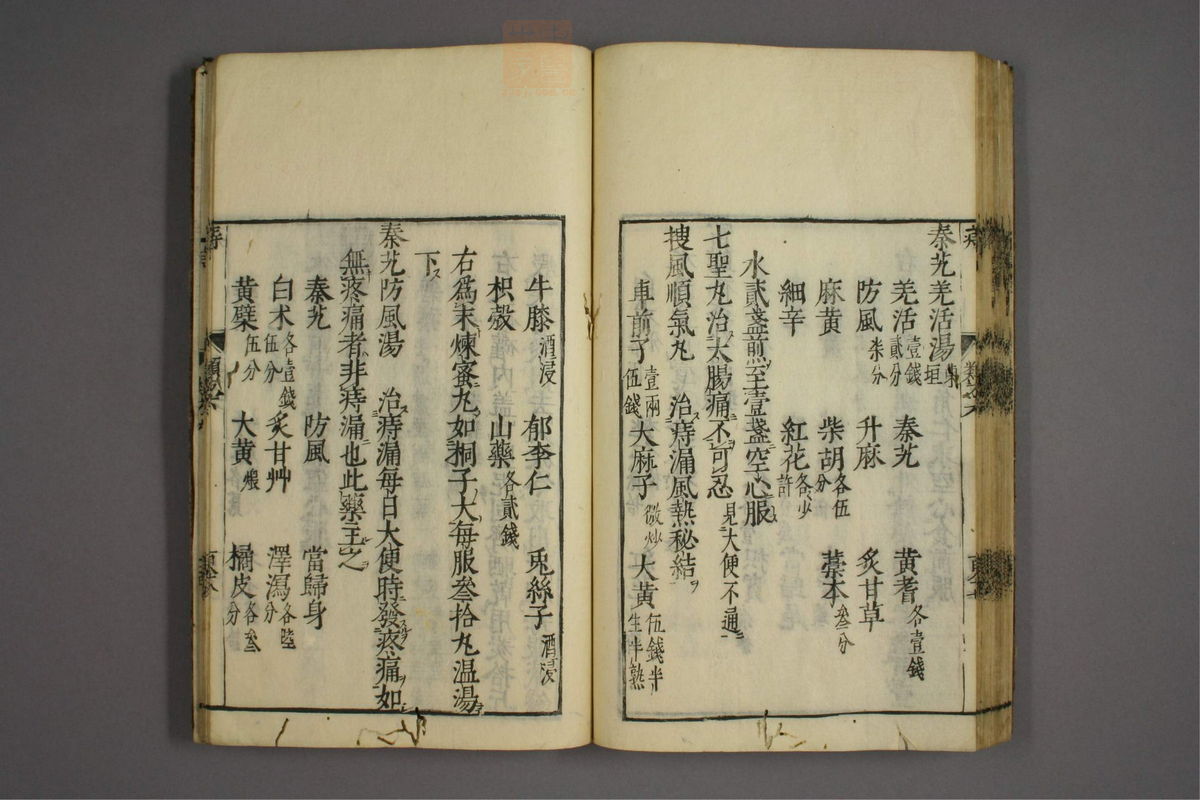 秦艽羌活湯東垣
羌活壹錢貳分 秦艽 黃耆各壹錢
防風柒分 升麻 炙甘草
麻黃 柴胡各伍分 藁本叁分
細辛 紅花各少許
水貳盞煎至壹盞空心服
七聖丸治大腸痛不可忍見大便不通
搜風順氣丸 治痔漏風熱秘結
車前子壹兩伍錢 大麻子微炒 大黃伍錢半生半熟
牛膝酒浸 郁李仁 兎絲子酒浸
枳殼 山藥各貳錢
右爲末煉蜜丸如桐子大每服叁拾丸温湯
下
秦艽防風湯 治痔漏每日大便時發疼痛如
無疼痛者非痔漏也此藥主之
秦艽 防風 當歸身
白术各壹錢伍分 炙甘艸 澤瀉各陸分
黃蘗伍分 大黃煨 橘皮各叁分